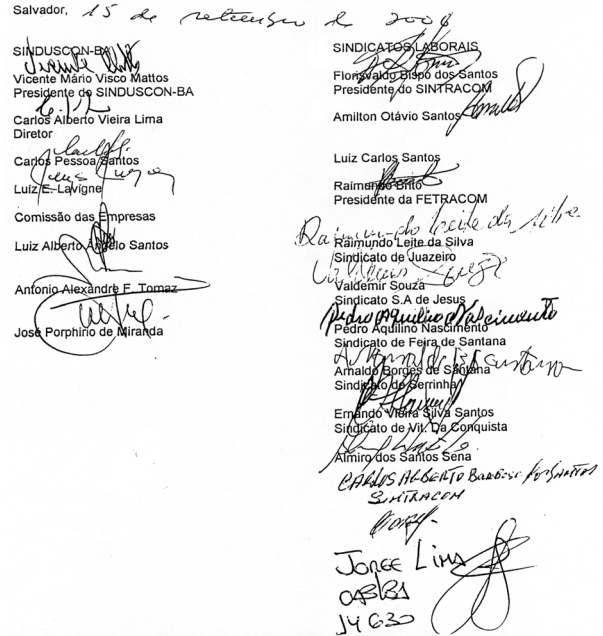 Salvador, 15 de setembro de 2006
SINDUSCON-BA
Vicente Mário Visco Mattos
Presidente do SINDUSCON-BA
Carlos Alberto Vieira Lima
Diretor
Carlos Pessoa Santos
Luiz E. Lavigne
Comissão das Empresas
Luiz Alberto Ângelo Santos
Antonio Alexandre F. Tomaz
José Porphirio de Miranda
SINDICATOS LABORAIS
Florisvaldo Bispo dos Santos
Presidente do SINTRACOM
Amilton Otávio Santos
Luiz Carlos Santos
Raimundo Brito
Presidente da FETRACOM
Raimundo Leite da Silva
Raimundo Leite da Silva
Sindicato de Juazeiro
Valdemir Souza
Sindicato S.A de Jesus
Pedro Aquilino Nascimento
Pedro Aquilino Nascimento
Sindicato de Feira de Santana
Arnaldo Borges de Santana
Sindicato de Serrinha
Ernando Vieira Silva Santos
Sindicato de Vit. Da Conquista
Almiro dos Santos Sena
CARLOS ALBERTO
SINTRACOM
JORGE LIMA
OAB/BA
14630